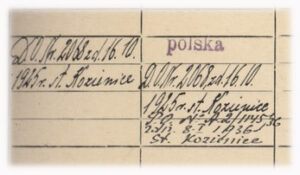 D.O. Nr. 2068 zd. 16.10.
1925 r. st. Kozienice
polska
D.O. Nr. 2068 zd. 16.10.
1925 r. st. Kozienice
D.O. Nr A.2/114536
z dn. 8.I 1936
St. Kozienice